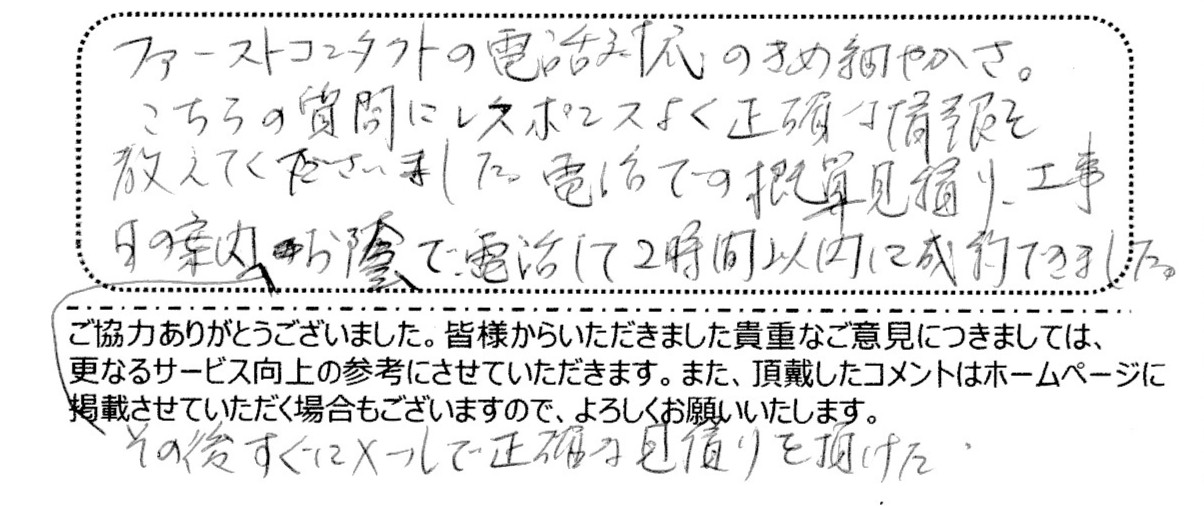 ファーストコンタクトの電話対応のきめ細やかさ。
こちらの質問にレスポンスよく正確な情報を
教えてくださいました。電話での概算見積り、工事
日の案内 お陰で電話して2時間以内に成約できました。
ご協力ありがとうございました。皆様からいただきました貴重なご意見につきましては、
更なるサービス向上の参考にさせていただきます。また、頂戴したコメントはホームページに
掲載させていただく場合もございますので、よろしくお願いいたします。
その後すぐにメールで正確な見積りを頂けた